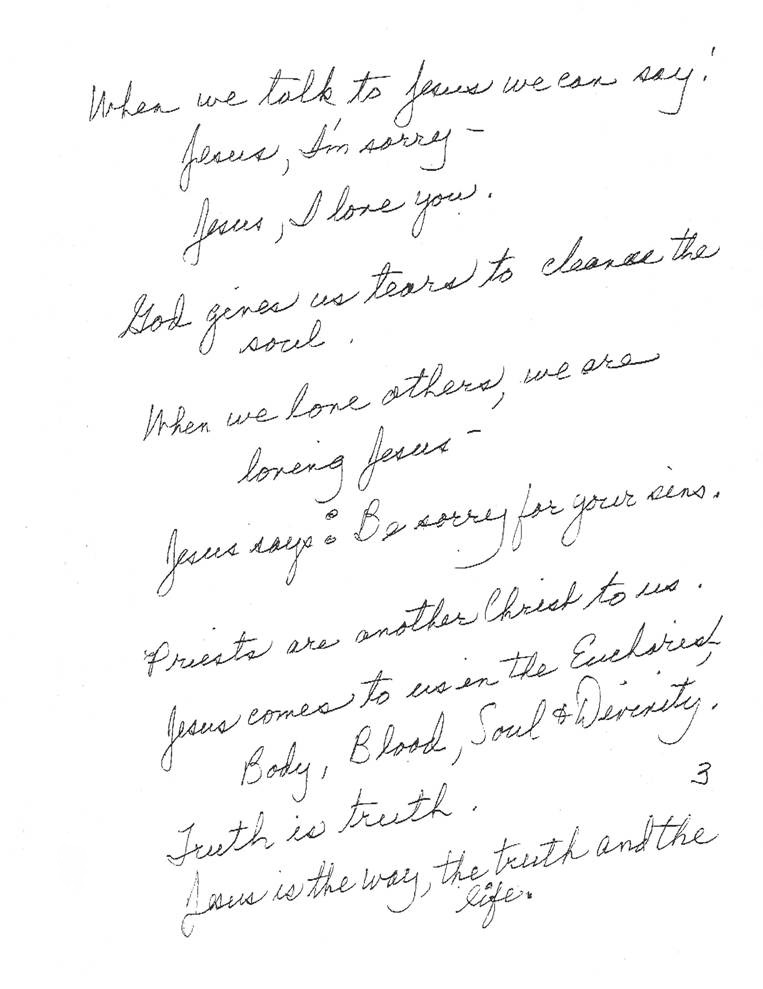 When we talk to Jesus we can say!
Jesus, I'm sorry -
Jesus, I love you.
God gives us tears to cleanse the
soul.
When we love others, we are
loving Jesus -
Jesus says: Be sorry for your sins.
Priests are another Christ to us.
Jesus comes to us in the Eucharist,
Body, Blood, Soul & Divinity.
3
Truth is truth.
Jesus is the way, the truth and the
life.